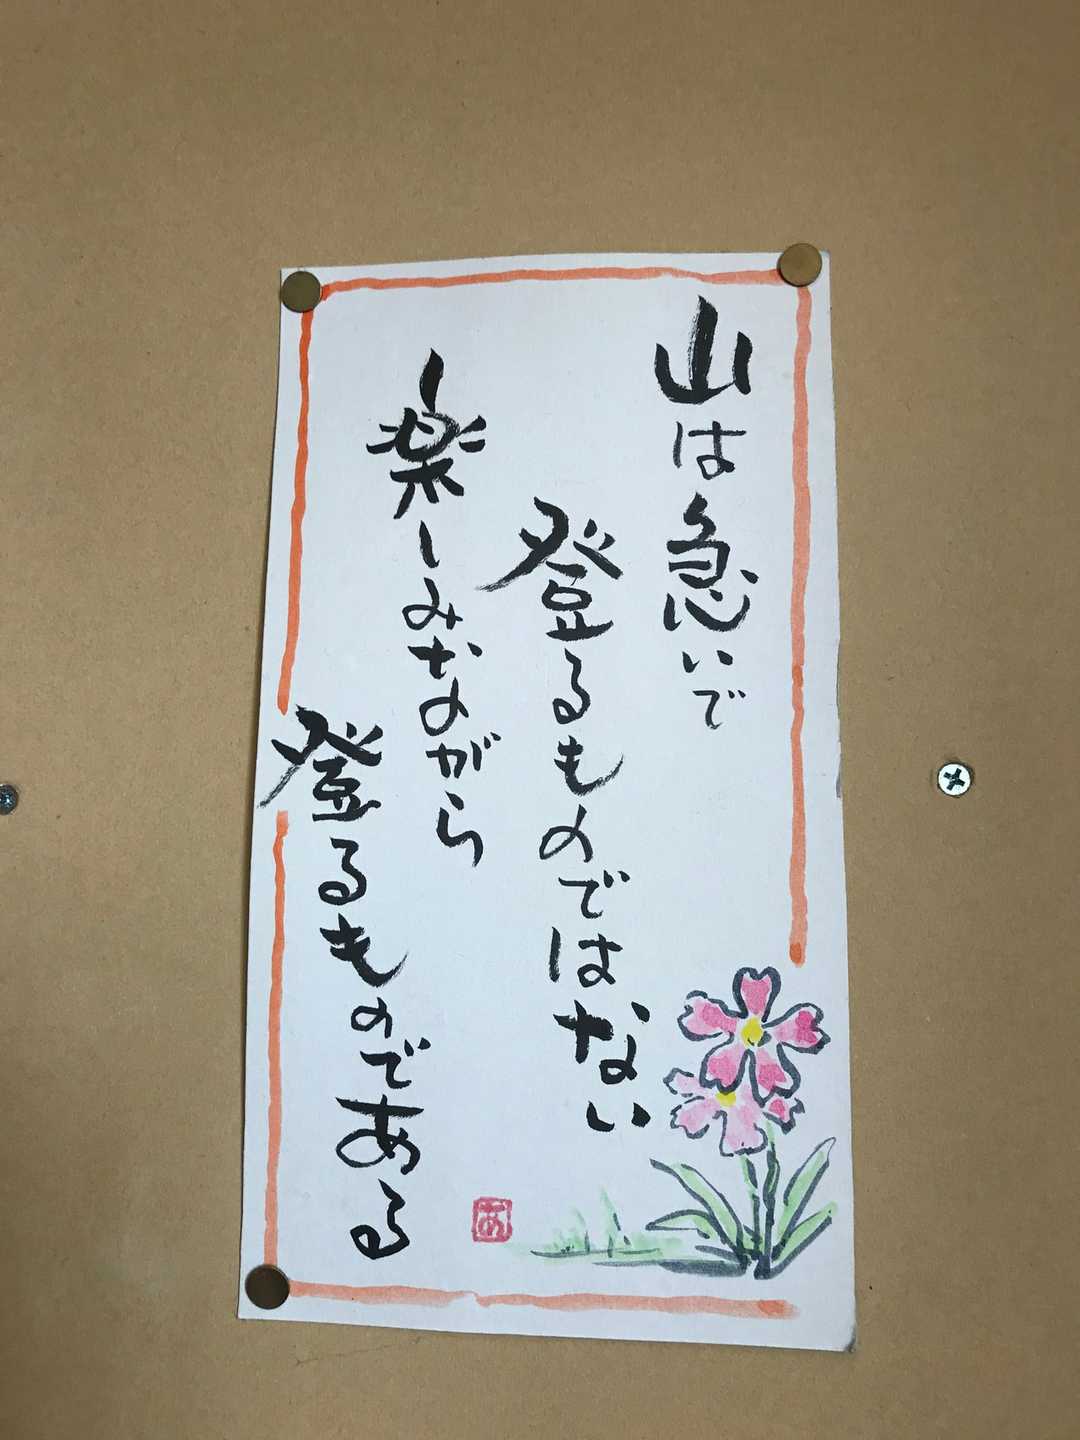 山は急いで
登るものではない
楽しみながら
登るものである
あ